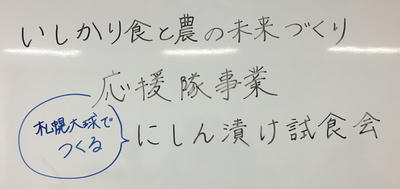 いしかり食と農の未来づくり
応援隊事業
札幌大球で
つくる
にしん漬け試食会